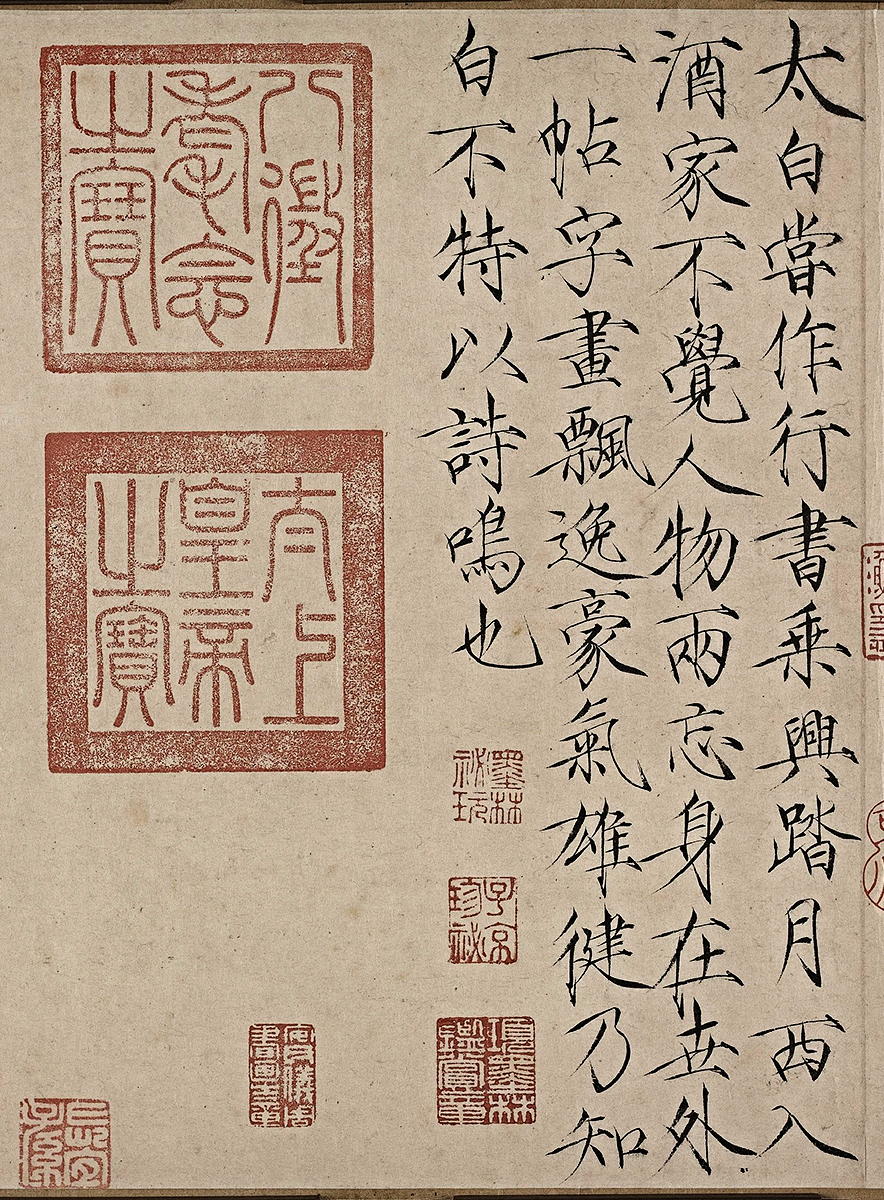 太白嘗作行書乗興踏月西入
酒家不覺人物兩忘身在世外
一帖字畫飄逸豪氣雄徤乃知
白不特以詩鳴也
墨林祕玩
子京珍祕
項墨林鑑賞章
安儀周書畫之章
八徵耄念之寶
太上皇帝之寶